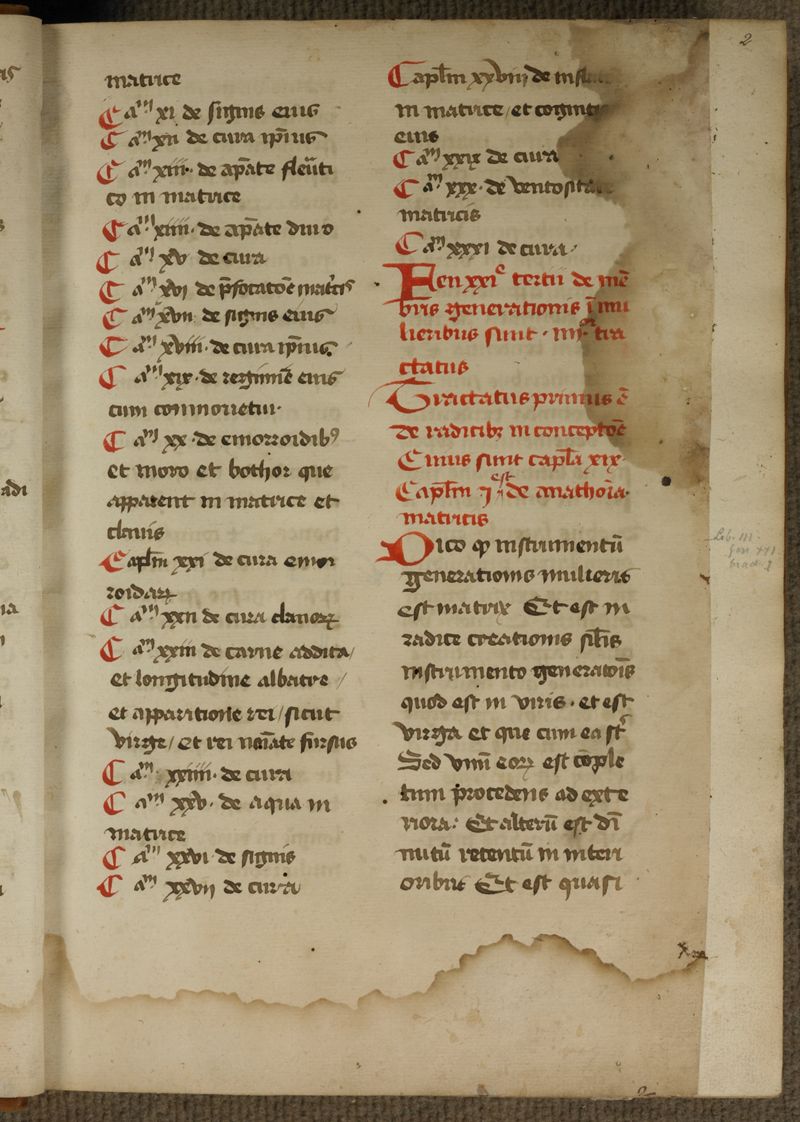 matrice
Ca^m xi de signis eius
Ca^m xii de cura ip̄ius
Ca^m xiii · de ap̄ate fleūti
co in matrice
Ca^m xiiii · de ap̄ate duro
Ca^m xv de cura
Ca^m xvj de p̄focatōe mat̄cis
Ca^m xvii de signis eius
Ca^m xviii · de cura ip̄ius
Ca^m xix · de regimīe eius
cum commouetur
Ca^m xx · de emorroidib⁹
et moro et bothor que
apparent in matrice et
clauis
Capl̄m xxi de cura emor
roidaꝝ
Ca^m xxii de cura clauoꝝ
Ca^m xxiii de carne addita /
et longitudine albatre /
et apparitione rei / sicut
virge / et rei
Ca^m xxiiii · de cura
Ca^m xxv · de aqua in
matrice
Ca^m xxvi de signis
Ca^m xxvij de cura
2
Capl̄m xxviij de
in matrice / et
eius
Ca^m xxix de cura
Ca^m xxx · de
matricis
Ca^m xxxi de cura ·
Fen xxi^a tertii de mē
bris generationis ī mu
lieribus sunt · iiij^or tra
ctatus
Tractatus primus ē
De radicibꝫ in conceptōe
Cuius sunt capl̄a xix
Capl̄m j est de anathoīa ·
matricis
Dico ꝙ instrumentū
generationis mulieris
est matrix Et est in
radice creationis sil̄is
instrumento generatōis
quod est in viris · et est
virga et que cum ea s̄t
Sed vnū eoꝝ est cōple
tum procedens ad exte
riora : Et alterū est di
nutū retentū in interi
oribus Et est quasi